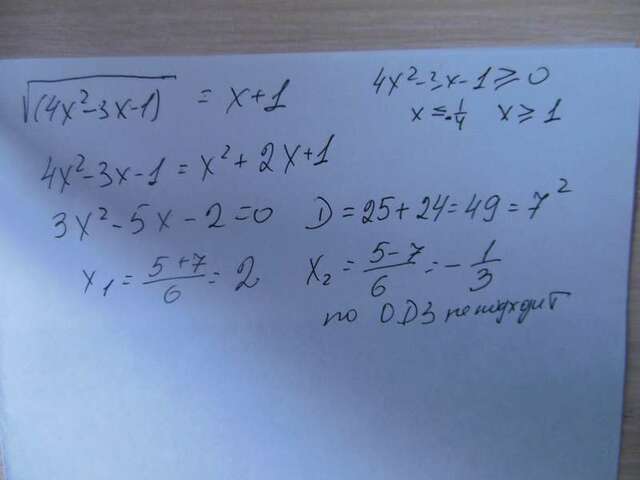 √(4x²-3x-1) = x+1
4x²-3x-1⩾0
x ⩽ -1/4 x ⩾ 1
4x²-3x-1 = x²+2x+1
3x²-5x-2=0 D=25+24=49=7²
x₁ = (5+7)/6 = 2 x₂ = (5-7)/6 = -1/3
по ОДЗ не подходит